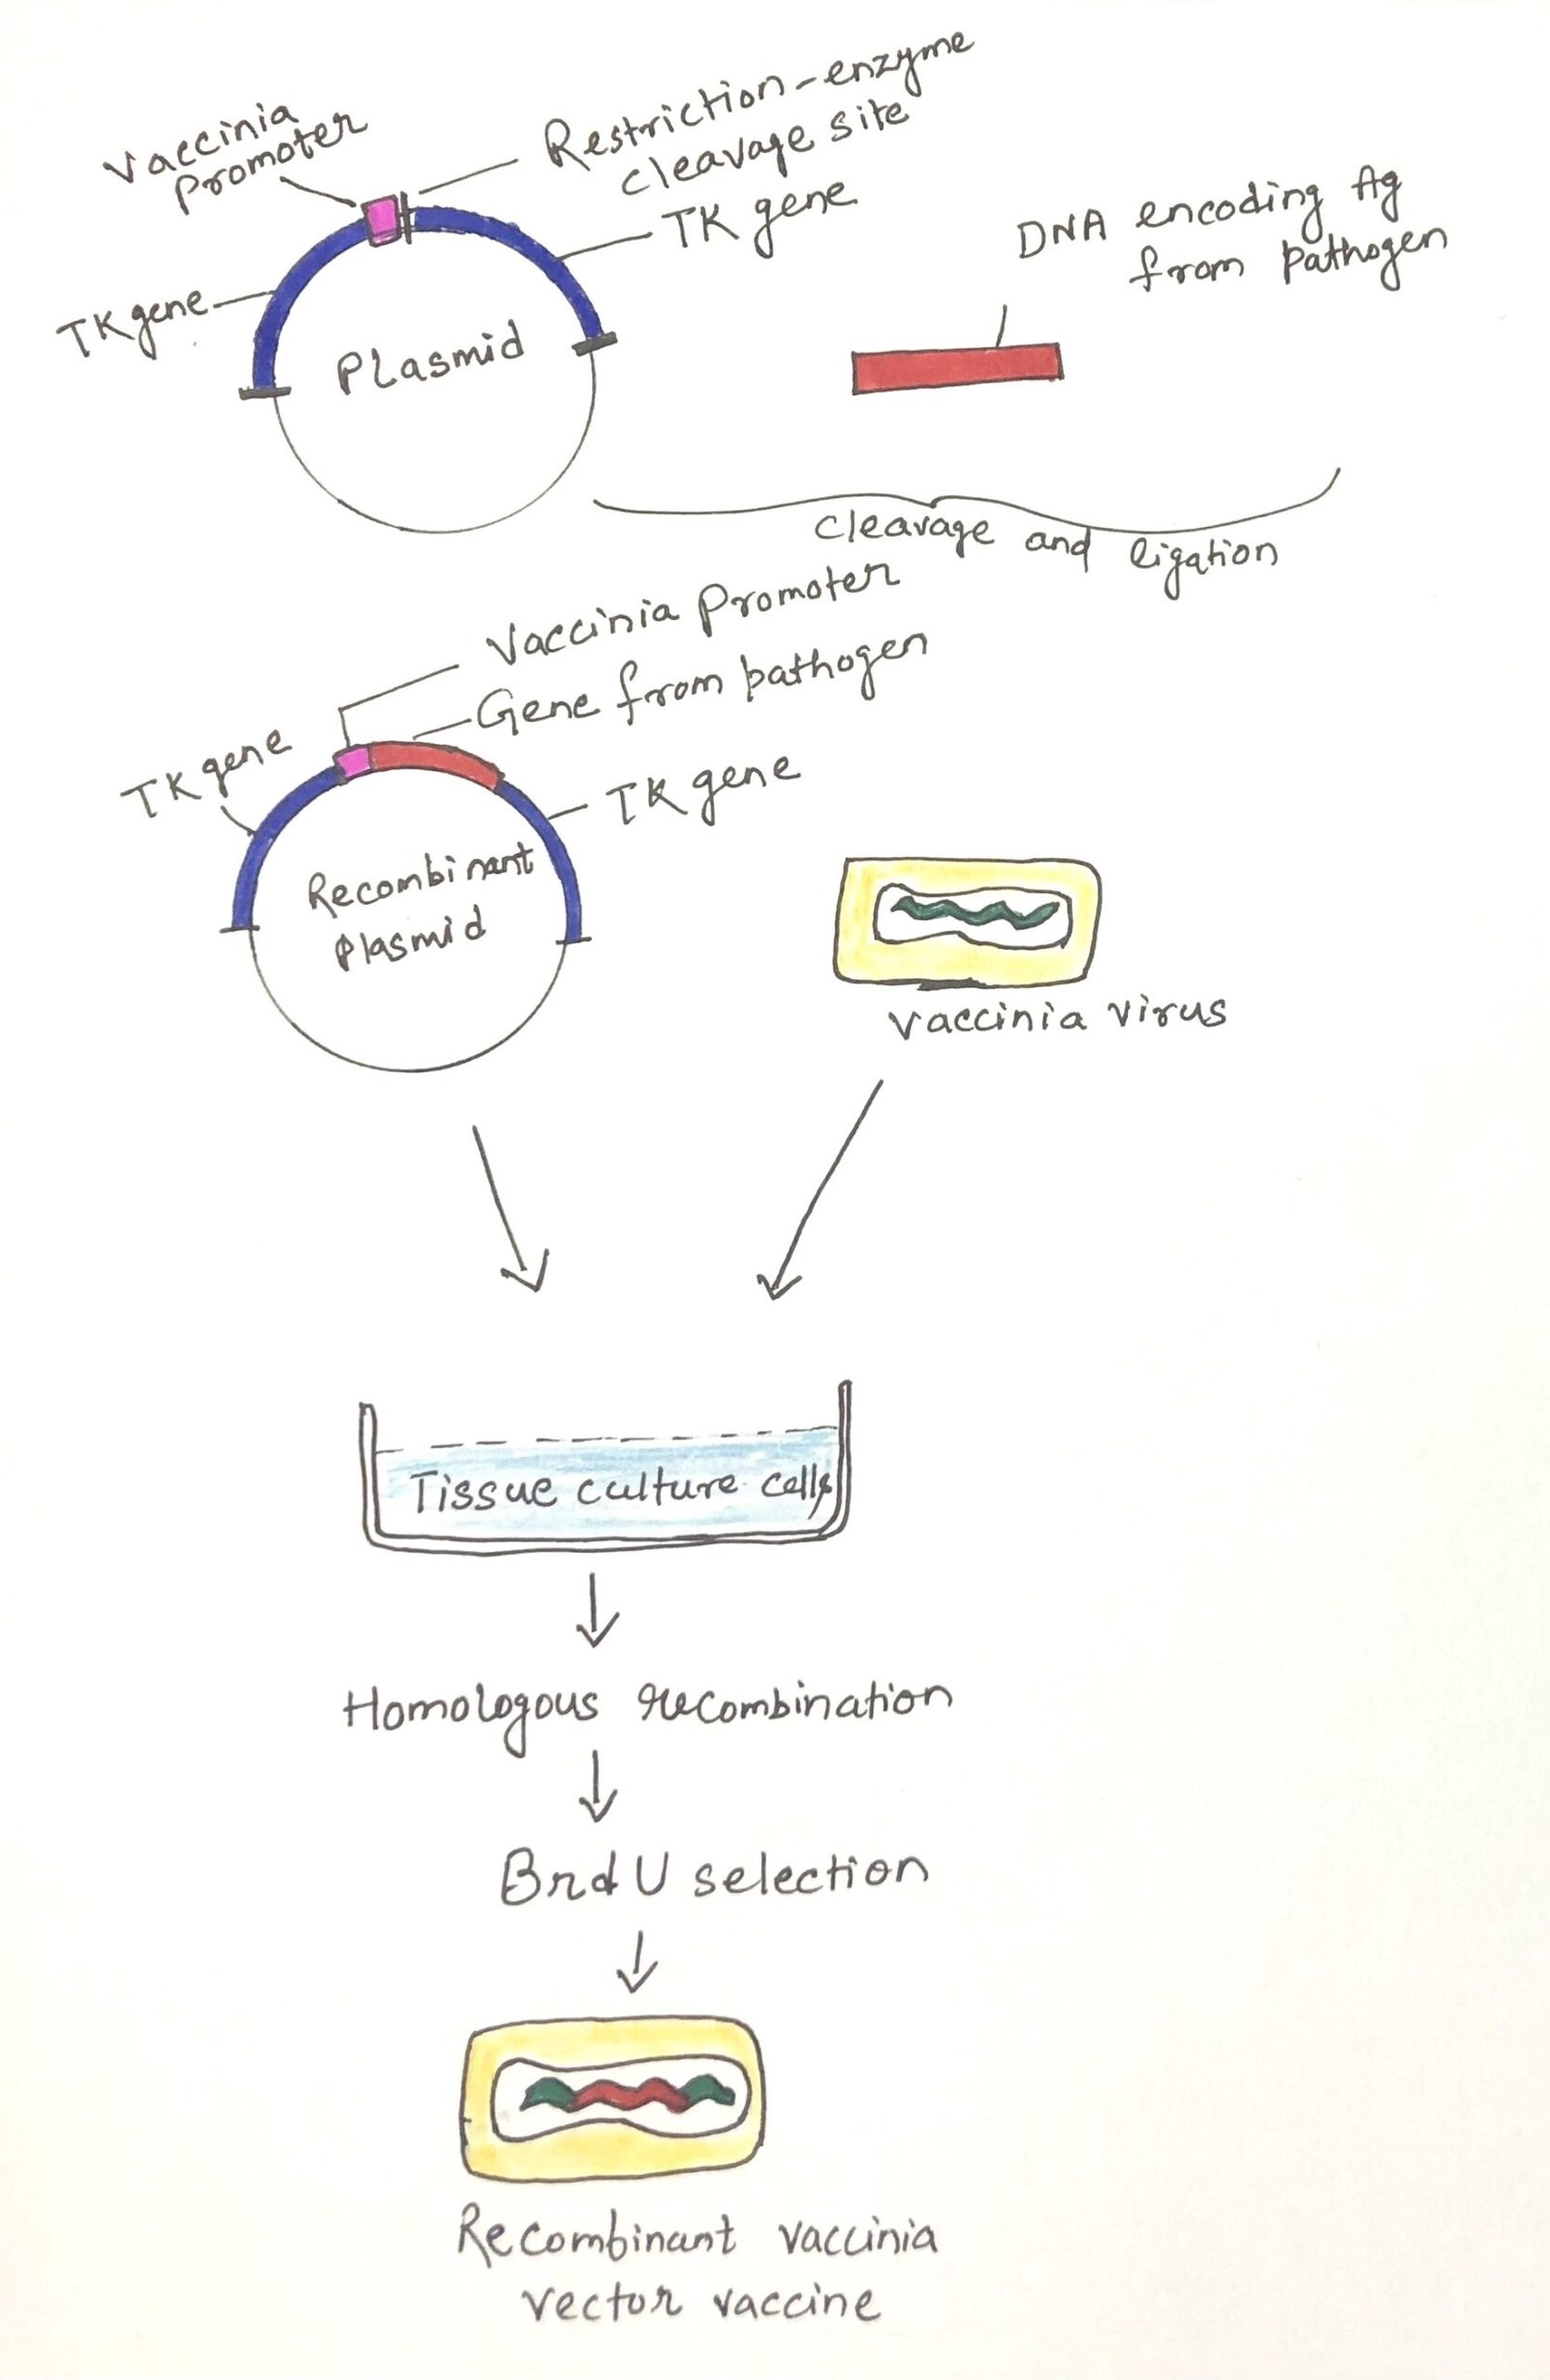 Vaccinia
Promoter
Restriction-enzyme
cleavage site
TK gene
TK gene
Plasmid
DNA encoding Ag
from pathogen
cleavage and ligation
Vaccinia Promoter
Gene from pathogen
TK gene
TK gene
Recombinant
Plasmid
vaccinia virus
Tissue culture cells
Homologous recombination
BrdU selection
Recombinant vaccinia
vector vaccine